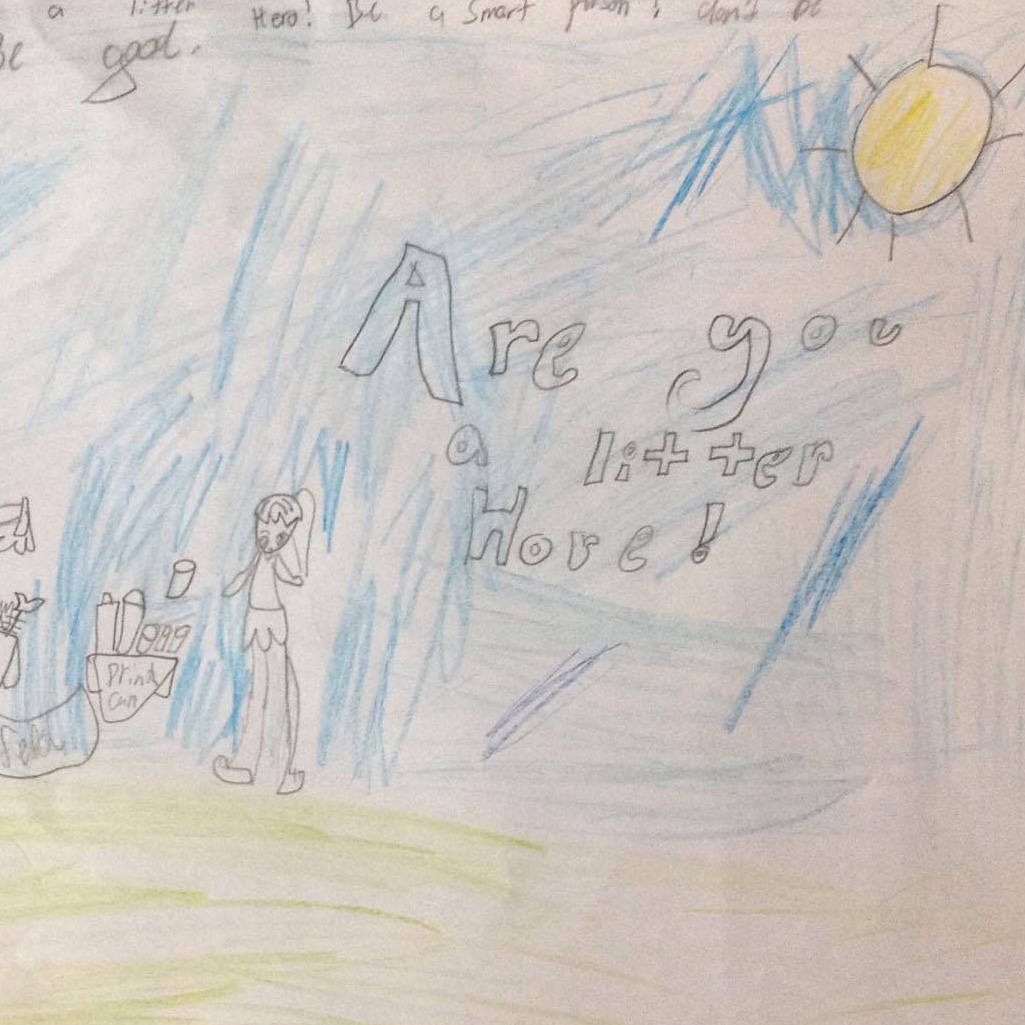 a litter Hero! Be a Smart person! don't be
Be good.
Are you
a litter
Hore!